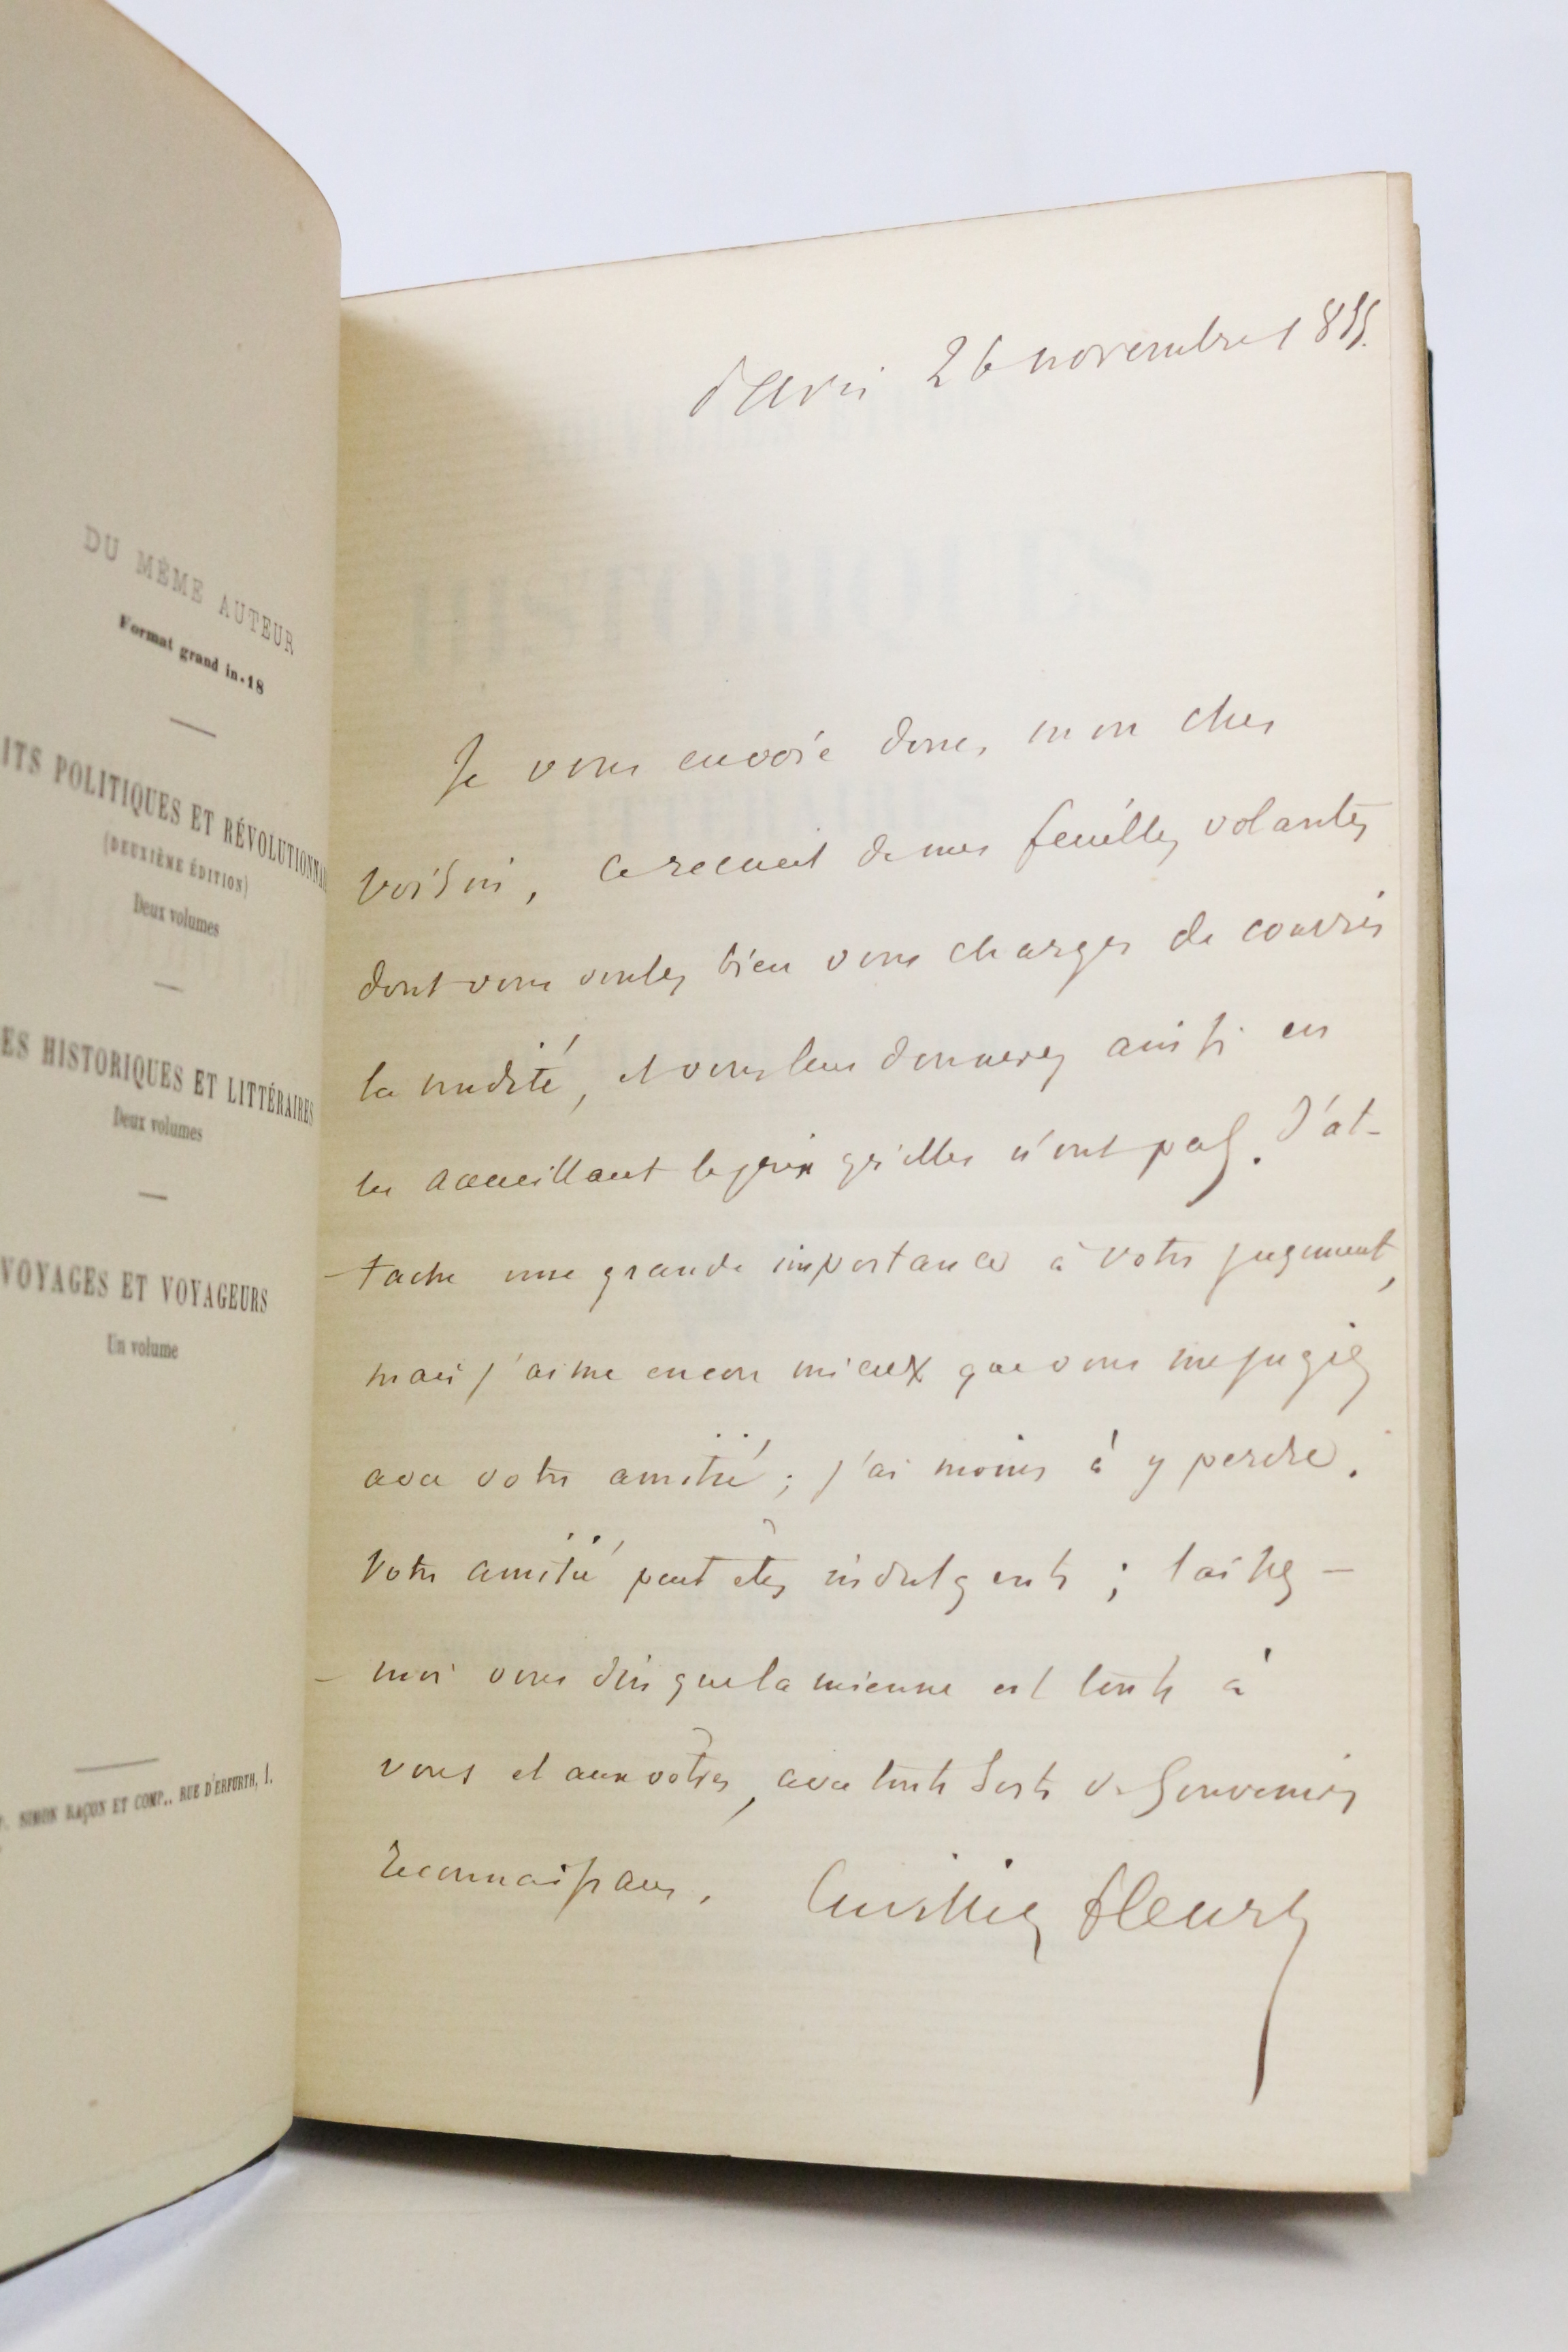 DU MÊME AUTEUR
Format grand in-18
ITS POLITIQUES ET RÉVOLUTIONNAI
(DEUXIÈME ÉDITION)
Deux volumes
ES HISTORIQUES ET LITTÉRAIRES
Deux volumes
VOYAGES ET VOYAGEURS
Un volume
SIMON RAÇON ET COMP., RUE D'ERFURTH, 1.
Paris 26 novembre 1855.
Je vous envoie donc, mon cher
voisin, ce recueil de mes feuilles volantes
dont vous voulez bien vous charger de couvrir
la nudité, et vous leur donnerez ainsi en
les accueillant le prix qu'elles n'ont pas. J'at-
-tache une grande importance à votre jugement,
mais j'aime encore mieux que vous me jugiez
avec votre amitié; j'ai moins à y perdre.
Votre amitié peut être indulgente; laissez-
-moi vous dire que la mienne est toute à
vous et aux vôtres, avec toute sorte de souvenirs
reconnaissans.
Cuvillier Fleury